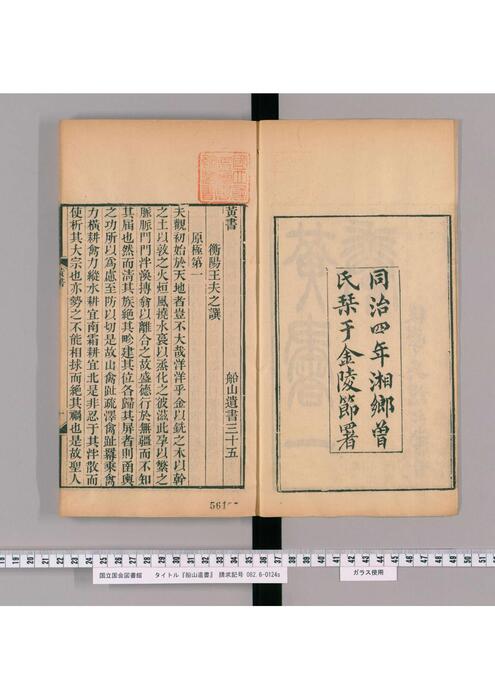 同治四年湘鄉曾
氏栞于金陵節署
黃書
船山遺書三十五
衡陽王夫之譔
原極第一
夫觀初始於天地者豈不大哉洋洋乎金以銑之木以幹
之土以敦之火烜風撓水裛以烝化之彼滋此孕以繁之
脈脈門門泮渙摶翕以離合之故盛德行於無疆而不知
其屆也然而清其族絕其畛建其位各歸其屏者則函輿
之功所以爲慮至防以切是故山禽趾疏澤禽趾羃乘禽
力橫耕禽力縱水耕宜南霜耕宜北是非忍于其泮散而
使析其大宗也亦勢之不能相捄而絕其禍也是故聖人
561
国立国会図書館 タイトル『船山遺書』 請求記号 082.6-0124s
ガラス使用